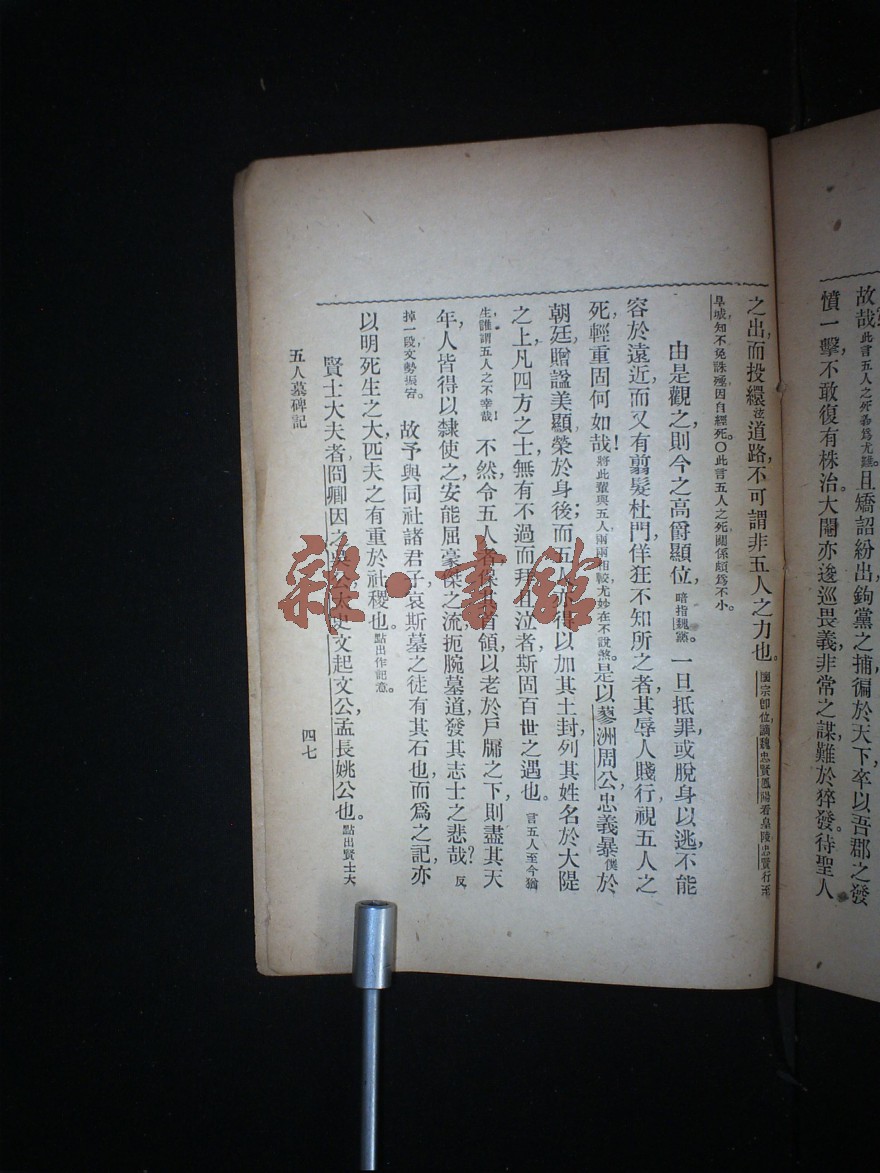 故哉此言五人之死爲尤難。且矯詔紛出,鉤黨之捕,徧於天下,卒以吾郡之發
憤一擊,不敢復有株治。大閹亦逡巡畏義,非常之謀,難於猝發。待聖人
之出,而投繯道路,不可謂非五人之力也。閔宗卽位,謫魏忠賢鳳陽看皇陵,忠賢行至
阜城,知不免誅殛,因自經死。○此言五人之死,關係頗爲不小。
由是觀之,則今之高爵顯位,暗指魏黨。一旦抵罪,或脫身以逃,不能
容於遠近,而又有翦髮杜門,佯狂不知所之者,其辱人賤行,視五人之
死,輕重固何如哉!將此輩與五人,兩兩相較,尤妙在不說煞。是以蓼洲周公,忠義暴僕於
朝廷,贈諡美顯,榮於身後;而五人亦得以加其土封,列其姓名於大隄
之上,凡四方之士,無有不過而拜且泣者,斯固百世之遇也。言五人至今猶
生,誰謂五人之不幸哉!不然,令五人者保其首領,以老於戶牖之下,則盡其天
年,人皆得以隸使之,安能屈豪傑之流,扼腕墓道,發其志士之悲哉?反
掉一段,文勢振宕。故予與同社諸君子,哀斯墓之徒有其石也,而爲之記,亦
以明死生之大,匹夫之有重於社稷也。點出作記意。
賢士大夫者,冏卿因之吳公,太史文起文公,孟長姚公也。點出賢士大
五人墓碑記
四七
雜·書館